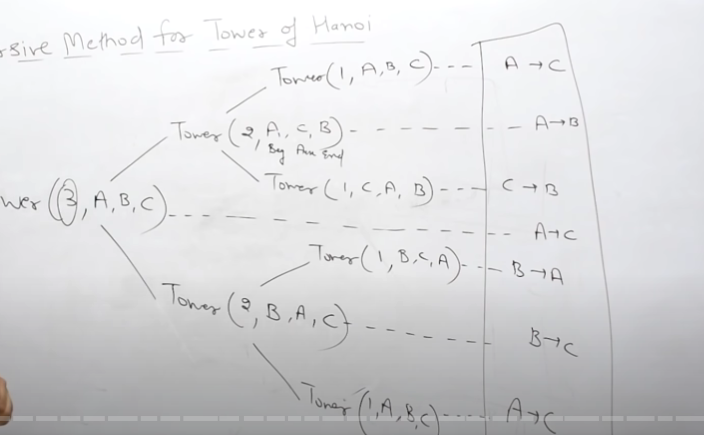 rsive Method for Tower of Hanoi
Tower(1, A, B, C)--- A→C
Tower(2, A, C, B)- - - - - - - A→B
Beg Aux End
Tower(1, C, A, B)--- C→B
wer(3, A, B, C)- - - - - - - - - A→C
Tower(1, B, C, A)--- B→A
Tower(2, B, A, C)- - - - - - B→C
Tower(1, A, B, C)---- A→C